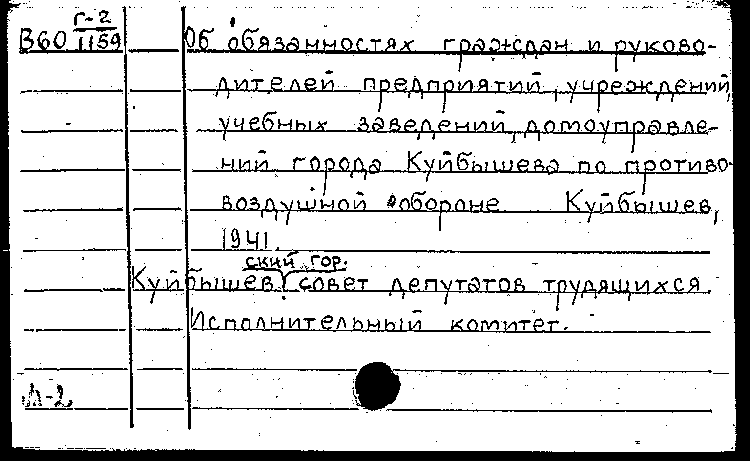 Г-2
В60 1159 Об обязанностях граждан и руково-
дителей предприятий, учреждений,
учебных заведений, домоуправле-
ний города Куйбышева по противо-
воздушной обороне Куйбышев,
1941.
ский гор.
Куйбышев совет депутатов трудящихся.
Исполнительный комитет.
Л-2